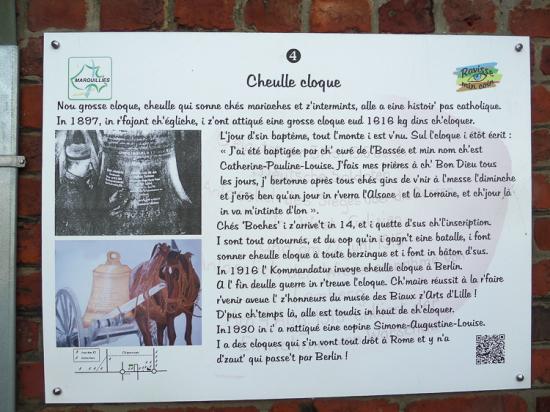 4
MARQUILLIES
Ravisse
min coin
Cheulle cloque
Nou grosse cloque, cheulle qui sonne chés mariaches et z'intermints, alle a eine histoir' pas catholique.
In 1897, in r'fajant ch'égliche, i z'ont attiqué eine grosse cloque eud 1616 kg dins ch'cloquer.
L'jour d'sin baptême, tout l'monte i est v'nu. Sul l'cloque i étôt écrit :
« J'ai été baptigée par ch' curé de l'Bassée et min nom ch'est
Catherine-Pauline-Louise. J'fais mes prières à ch' Bon Dieu tous
les jours, j' bertonne après tous chés gins de v'nir à l'messe l'diminche
et j'crôs ben qu'un jour in r'verra l'Alsace et la Lorraine, et ch'jour là
in va m'intinte d'lon ».
Chés 'Boches' i z'arrive't in 14, et i quette d'sus ch'l'inscription.
I sont tout artournés, et du cop qu'in i gagn't eine batalle, i font
sonner cheulle cloque à toute berzingue et i font in bâton d'sus.
In 1916 l' Kommandatur invoye cheulle cloque à Berlin.
A l' fin deulle guerre in r'treuve l'cloque. Ch'maire réussit à la r'faire
r'venir aveuc l' z'honneurs du musée des Biaux z'Arts d'Lille !
D'pus ch'temps là, alle est toudis in haut de ch'cloquer.
In 1930 in i' a rattiqué eine copine Simone-Augustine-Louise.
I a des cloques qui s'in vont tout drôt à Rome et y n'a
d'zaut' qui passe't par Berlin !